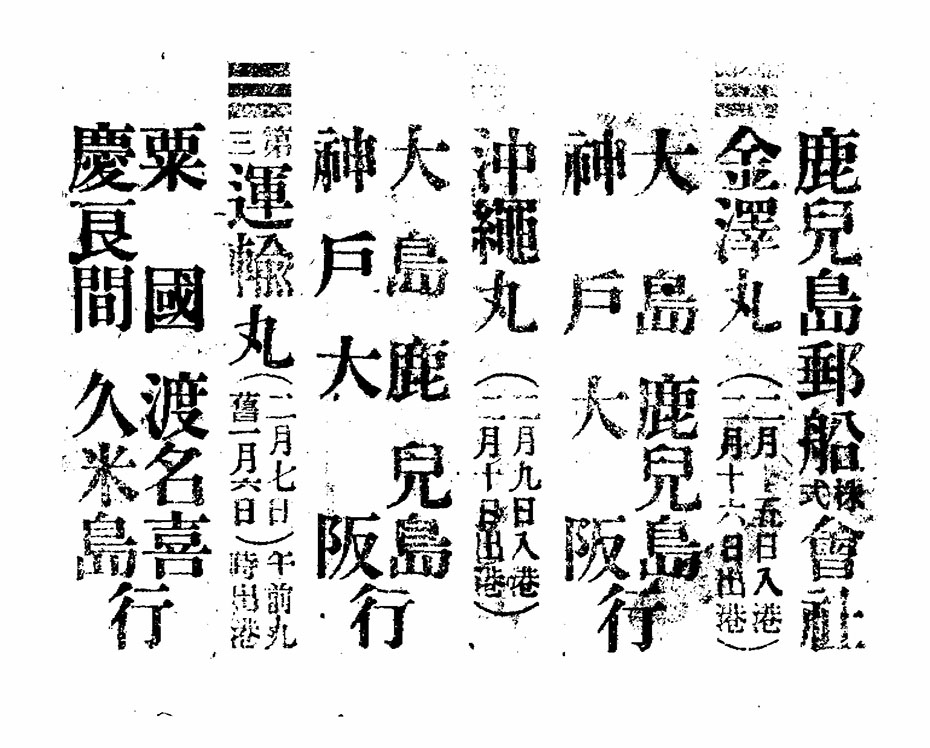 鹿兒島郵船株式會社
金澤丸(二月十五日入港
二月十六日出港)
大島鹿兒島
神戶大阪行
沖繩丸(二月九日入港
二月十日出港)
大島鹿兒島
神戶大阪行
第三運輸丸(二月七日
舊一月六日)午前九
時出港
粟國渡名喜
慶良間久米島行